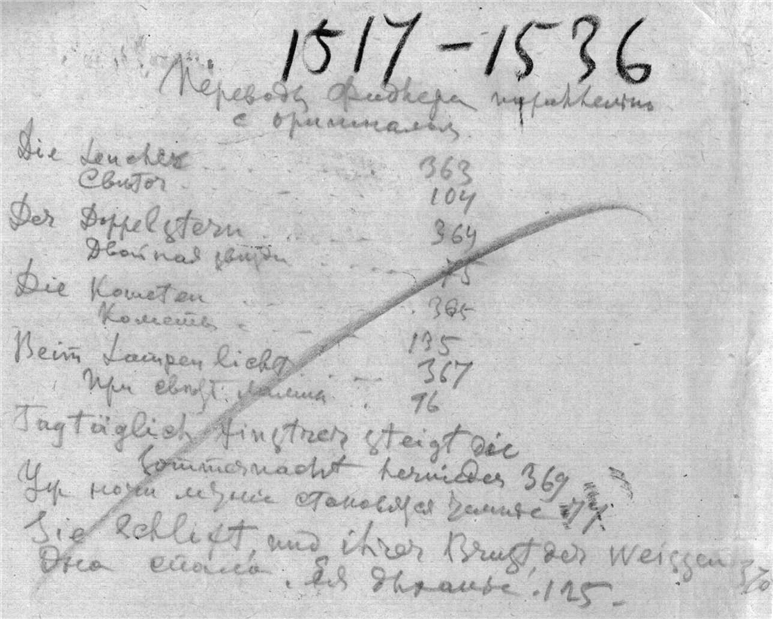 1517-1536
Переводы Фидлера параллельно
с оригиналом
Die
363
Светоч
104
Der Doppelstern
364
Двойная звезда
75
Die Kometen
365
Кометы
135
Beim Lampenlicht
367
При свете лампы
96
Tagtäglich finstrer steigt die
Sommernacht hernieder 369
ночи становятся 77.
Sie schläft, und ihrer Brust, der weissen 370
Она спала. Ея дыханье. 125.